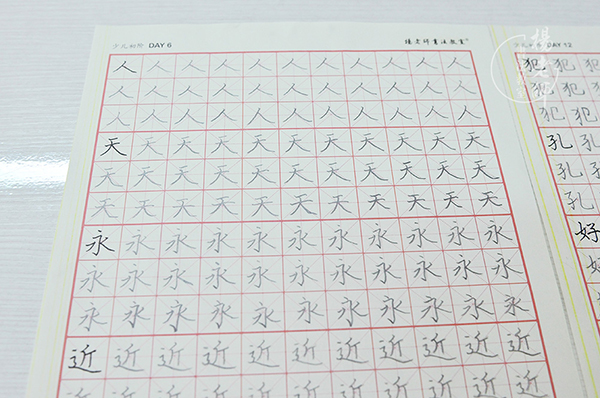 少儿初阶 DAY 6
人人人人人人人人人人人
人人人人人人人人人人人
人人人人人人人人人人人
天天天天天天天天天天天
天天天天天天天天天天天
天天天天天天天天天天天
永永永永永永永永永永永
永永永永永永永永永永永
永永永永永永永永永永永
近近近近近近近近近近近
近近近近近近近近近近近
DAY 12
犯犯犯
犯犯
犯犯
孔孔
孔孔
孔孔
好